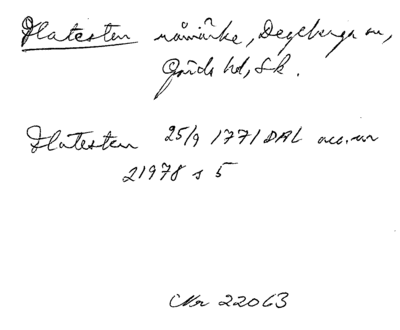 Flatesten råmärke, Degeberga sn,
Gärds hd, Sk.
Flatesten 25/9 1771 DAL acc.nr
21978 s 5
Nr 22063